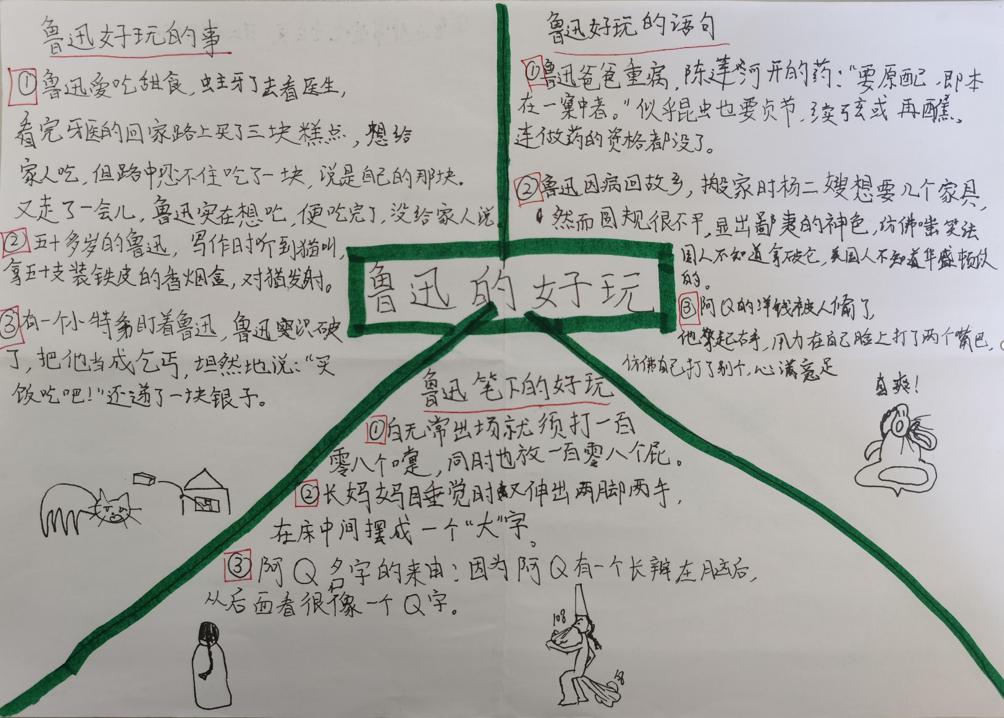 鲁迅好玩的事
①鲁迅爱吃甜食,虫主牙了去看医生,
看完牙医的回家路上买了三块糕点,想给
家人吃,但路中忍不住吃了一块,说是自己的那块。
又走了一会儿,鲁迅实在想吃,便吃完了,没给家人说
②五十多岁的鲁迅,写作时听到猫叫,
拿五十支装铁皮的香烟盒,对猫发射。
③有一个小特务盯着鲁迅,鲁迅突识破
了,把他当成乞丐,坦然地说:“买
饭吃吧!”还递了一块银子。
鲁迅好玩的语句
①鲁迅爸爸重病,陈莲河开的药:“要原配,即本
在一窠中者。”似乎昆虫也要贞节,续弦或再醮,
连做药的资格都没了。
②鲁迅因病回故乡,搬家时杨二嫂想要几个家具,
然而圆规很不平,显出鄙夷的神色,仿佛嗤笑法
国人不知道拿破仑,美国人不知道华盛顿似
的。
③阿Q的洋钱被人偷了,
他擎起右手,用力在自己脸上打了两个嘴巴,
仿佛自己打了别个,心满意足
真爽!
鲁迅的好玩
鲁迅笔下的好玩
①白无常出场就须打一百
零八个嚏,同时也放一百零八个屁。
②长妈妈睡觉时又伸出两脚两手,
在床中间摆成一个“大”字。
③阿Q名字的来由:因为阿Q有一个长辫在脑后,
从后面看很像一个Q字。
108
108